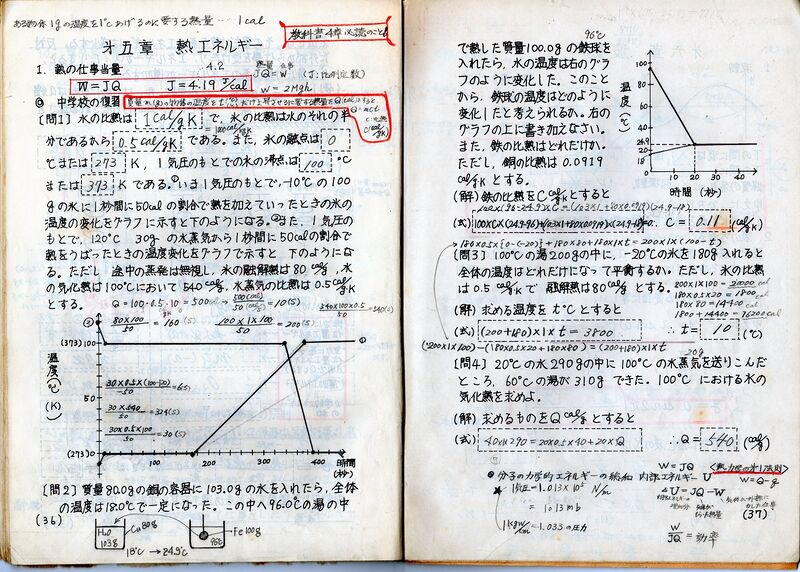 ある物体1gの温度を1℃あげるのに要する熱量…1cal
教科書4章必読のこと!
才五章 熱エネルギー
I. 熱の仕事当量
4.2
熱量 仕事
JQ=W (J:比例定数)
W=JQ J=4.19 J/cal
W=2Mgh
◎ 中学校の復習
[問1] 水の比熱は 1cal/gK で、氷の比熱は水のそれの半
分であるから 0.5cal/gK である。また、氷の融点は 0
℃または 273 K、1気圧のもとでの水の沸点は 100 ℃
または 373 K である。①いま1気圧のもとで、-10℃の100
gの氷に1秒間に50calの割合で熱を加えていったときの氷の
温度の変化をグラフに示すと下のようになる。②また、1気圧の
もとで、120℃ 30gの水蒸気から1秒間に50calの割合で
熱をうばったときの温度変化をグラフで示すと、下のようにな
る。ただし、途中の蒸発は無視し、氷の融解熱は80cal/g、水
の気化熱は100℃において540cal/g、水蒸気の比熱は0.5cal/gK
とする。
Q=100・0.5・10=500cal → 500(cal)/50(cal/s)=10(s)
540×100×0.5/50=540(s)
80×100/50=160(s) 100×1×100/50=200(s)
(373)100
温度(℃)(K)
30×0.5×(100-120)/-50=6(s)
50
30×540/50=324(s)
30×0.5×100/50=30(s)
(273)0
100 200 300 400 時間(秒)
[問2] 質量80.0gの銅の容器に103.0gの水を入れたら、全体
の温度は18.0℃で一定になった。この中へ96.0℃の湯の中
(36)
H₂O 103g
Cu80g
96℃
Fe100g
18℃ → 24.9℃
96℃
で熱した質量100.0gの鉄球を
入れたら、水の温度は右のグラ
フのように変化した。このこと
から、鉄球の温度はどのように
変化したと考えられるか。右の
グラフの上に書き加えなさい。
また、鉄の比熱はどれだけか。
ただし、銅の比熱は0.0919
cal/gKとする。
100
温度(℃)
50
24.9
20
18
0 10 20 30 40
時間(秒)
(解) 鉄の比熱をC cal/gKとすると
100×(96-24.9)×C=(103×1+80×0.0919)(24.9-18)
(式) 100×C×(24.9-96)+(103×1+80×0.0919)×(24.9-18)=0 C=0.11 (cal/gK)
180×0.5×{0-(-20)}+180×80+180×1×t=200×1×(100-t)
[問3] 100℃の湯200gの中に、-20℃の氷を180g入れると
全体の温度はどれだけになって平衡するか。ただし、氷の比熱
は0.5cal/gKで融解熱は80cal/gとする。
200×1×100=20000cal
180×0.5×20=1800cal
180×80=14400
1800+14400=16200cal
(解) 求める温度をt℃とすると
(式) (200+180)×1×t=3800 ∴t=10 (℃)
(200×1×100)-(180×0.5×20+180×80)=(200+180)×1×t
20g
[問4] 20℃の水290gの中に100℃の水蒸気を送りこんだ
ところ、60℃の湯が310gできた。100℃における水の
気化熱を求めよ。
(解) 求めるものをQ cal/gとすると
(式) 40×1×290=20×0.5×40+20×Q ∴Q=540 (cal/g)
◎ 分子の力学的エネルギーの総和 内部エネルギーU
<熱力学の才1法則>
★1気圧=1.013×10⁵ N/m
=1013mb
1kgw/cm=1.033の圧力
W=JQ
W=Q-q
U=JQ-W
W/JQ=効率
(37)